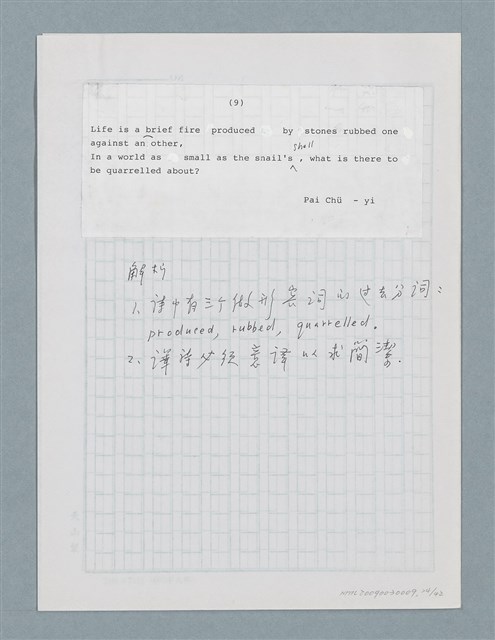 (9)
Life is a brief fire produced by stones rubbed one
against an other,
shell
In a world as small as the snail's , what is there to
be quarrelled about?
Pai Chü - yi
解析
1、詩中有三个做形容词的过去分词：
produced, rubbed, quarrelled.
2、譯詩必須意譯以求簡潔.